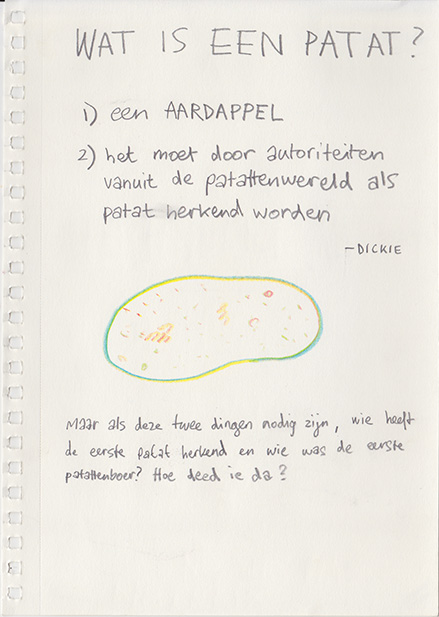 WAT IS EEN PATAT?
1) een AARDAPPEL
2) het moet door autoriteiten
vanuit de patattenwereld als
patat herkend worden
- DICKIE
Maar als deze twee dingen nodig zijn, wie heeft
de eerste patat herkend en wie was de eerste
patattenboer? Hoe deed ie da?